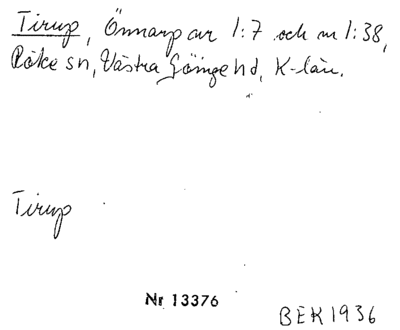 Tirup, Önnarp av 1:7 och m 1:38,
Röke sn, Västra Göinge hd, K-län.
Tirup
Nr 13376
BEK 1936